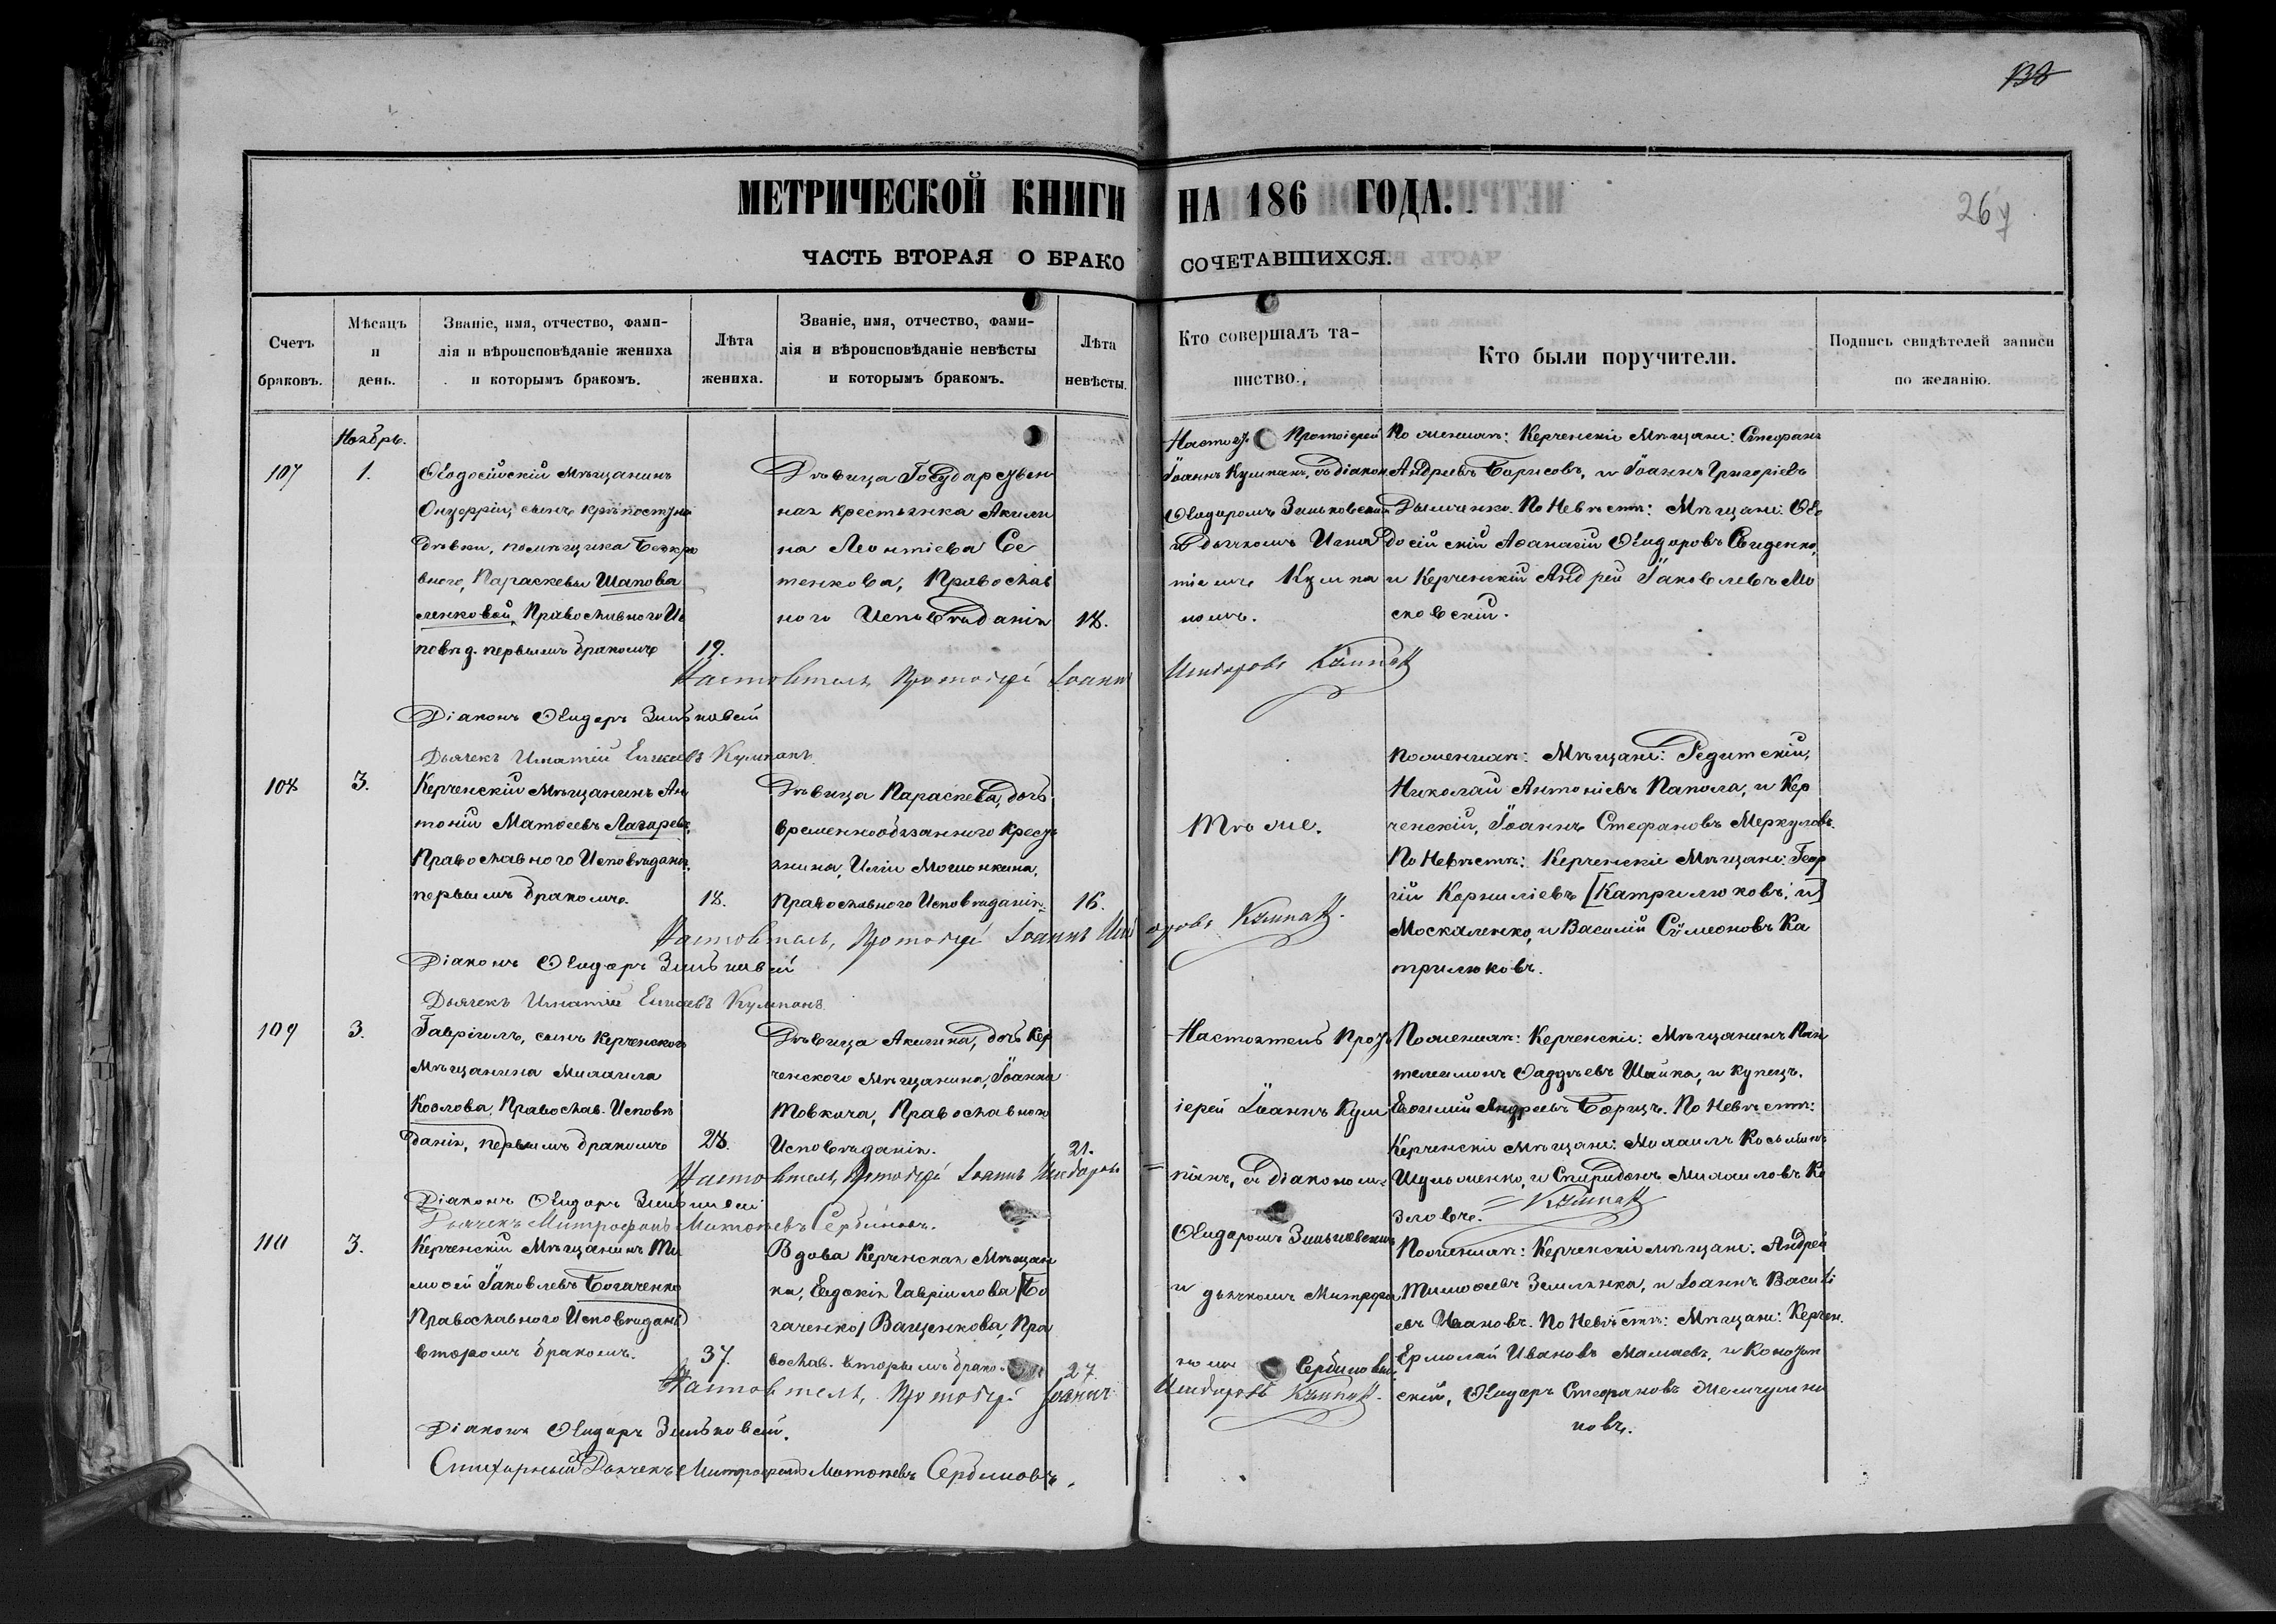 138
МЕТРИЧЕСКОЙ КНИГИ НА 186 ГОДА.
267
ЧАСТЬ ВТОРАЯ О БРАКОСОЧЕТАВШИХСЯ.
Счетъ браковъ.
Мѣсяцъ и день.
Званіе, имя, отчество, фами-
лія и вѣроисповѣданіе жениха
и которымъ бракомъ.
Лѣта жениха.
Званіе, имя, отчество, фами-
лія и вѣроисповѣданіе невѣсты
и которымъ бракомъ.
Лѣта невѣсты.
Кто совершалъ та-
инство.
Кто были поручители.
Подпись свидѣтелей записи
по желанію.
Ноябрь.
107
1.
Ѳеодосійскій Мѣщанинъ
Онуфрій, сынъ крѣпостной
дѣвки, помѣщика Безкро
внаго, Параскевы Шапова
ленковой, Православного Ис
повѣд. первымъ бракомъ
19.
Дѣвица Государствен
ная крестьянка Акили
на Леонтіева Се
менкова, Православ
ного Исповѣданія
18.
Протоіерей
Іоаннъ Кумпанъ, съ діакон
Ѳеодоромъ Зиньковским
и дьячкомъ Игна
тіемъ Кумпа
номъ.
По женихѣ: Керченскіе Мѣщане: Стефанъ
Андреевъ Борисовъ, и Іоаннъ Григоріевъ
Дымченко. По Невѣстѣ: Мѣщане: Ѳео
досійскій Аѳанасій Ѳеодоровъ Свиденко,
и Керченскій Андрей Іаковлевъ Мо
сковскій.
Настоятель, Протоіерей Іоаннъ Исидоровъ Кумпан
Діаконъ Ѳеодоръ Зиньковскій
Дьячекъ Игнатій Елисеевъ Кумпанъ.
108
3.
Керченскій Мѣщанинъ Ан
тоній Матѳеевъ Лазаревъ,
Православного Исповѣданія,
первымъ бракомъ.
18.
Дѣвица Параскева, дочь
временнообязанного Кресть
янина, Иліи Мошонкина,
Православного Исповѣданія.
16.
Тоже.
По женихѣ: Мѣщане:
Николай Антоніевъ Папола, и Кер
ченскій, Іоаннъ Стефановъ Меркуловъ.
По Невѣстѣ: Керченскіе Мѣщане: Геор
гій Корниліевъ [Катрилюковъ, и]
Москаленко, и Василій Сѵмеоновъ Ка
трилюковъ.
Настоятель, Протоіерей Іоаннъ Исидоровъ Кумпан.
Діаконъ Ѳеодоръ Зиньковскій
Дьячекъ Игнатій Елисеевъ Кумпанъ.
109
3.
Гавріилъ, сынъ Керченскаго
Мѣщанина Михаила
Козлова, Православ. Исповѣ
данія, первымъ бракомъ
28.
Дѣвица Акилина, дочь Кер
ченского Мѣщанина, Іоанна
Товкача, Православного
Исповѣданія.
21.
Настоятель Прот
іерей Іоаннъ Кум
панъ, съ Діакономъ
Ѳеодоромъ Зиньковскимъ
и дьячкомъ Митрофа
номъ Сербиновы
По женихѣ: Керченскіе: Мѣщанинъ Пан
телеимонъ Ѳаддѣевъ Шайка, и купецъ.
Евѳимій Андреевъ Борицъ. По Невѣстѣ:
Керченскіе Мѣщане: Михаилъ Косьминъ
Шульженко, и Спиридонъ Михаиловъ Ко
зловъ.
Настоятель, Протоіерей Іоаннъ Исидоровъ Кумпан
Діаконъ Ѳеодоръ Зиньковскій
Дьячекъ Митрофанъ Матѳеевъ Сербиновъ.
110
3.
Керченскій Мѣщанинъ Ти
моѳей Іаковлевъ Богаченко
Православного Исповѣданія
вторымъ бракомъ.
37.
Вдова Керченская Мѣщан
ка, Евдокія Гавріилова [Бо
гаченко] Ващенкова, Пра
вослав. вторымъ брако
27.
По женихѣ: Керченскіе мѣщане: Андрей
Тимоѳеевъ Землянка, и Іоаннъ Василі
евъ Ивановъ. По Невѣстѣ: Мѣщане: Керчен.
Ермолай Ивановъ Мамаевъ, и Конотоп
скій, Ѳеодоръ Стефановъ
новъ.
Настоятель, Протоіерей Іоаннъ Исидоровъ Кумпан.
Діаконъ Ѳеодоръ Зиньковскій.
Стихарный Дьячекъ Митрофанъ Матѳеевъ Сербиновъ.